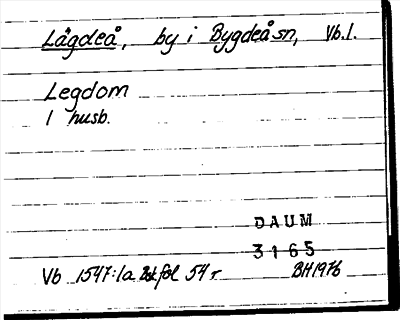 Lågdeå, by i Bygdeå sn, Vb.l.
Legdom
1 husb.
DAUM
3165
Vb 1547:1a fol 54 r BH 1976